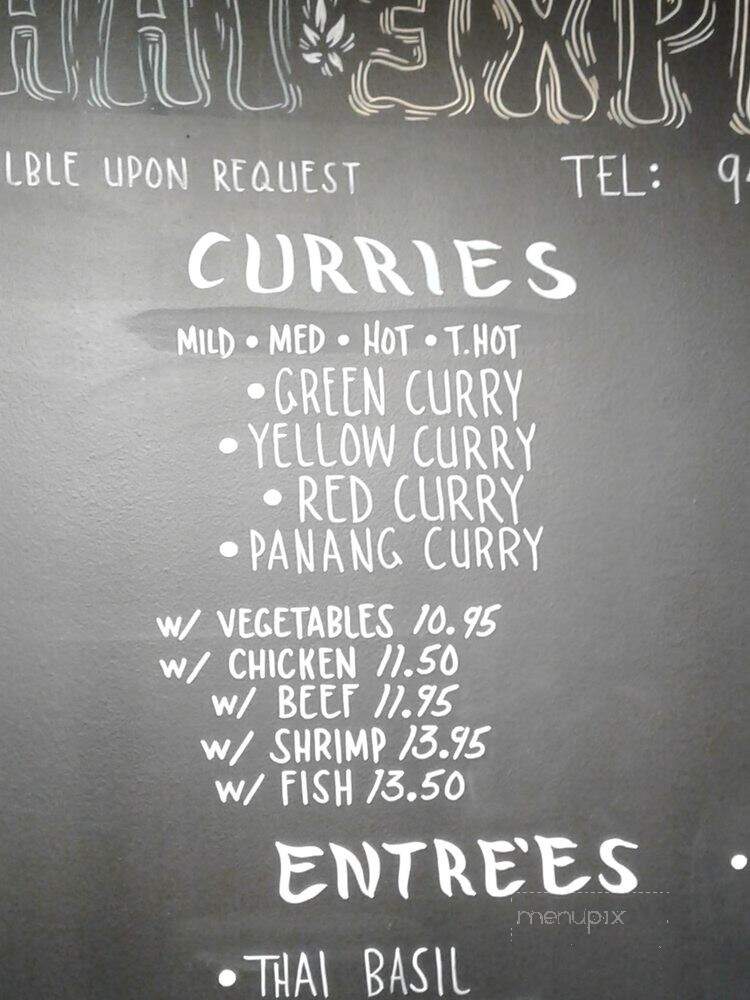 HAI EXP
LBLE UPON REQUEST TEL: 9
CURRIES
MILD • MED • HOT • T.HOT
• GREEN CURRY
• YELLOW CURRY
• RED CURRY
• PANANG CURRY
w/ VEGETABLES 10.95
w/ CHICKEN 11.50
w/ BEEF 11.95
w/ SHRIMP 13.95
w/ FISH 13.50
ENTRE'ES
menupix
• THAI BASIL